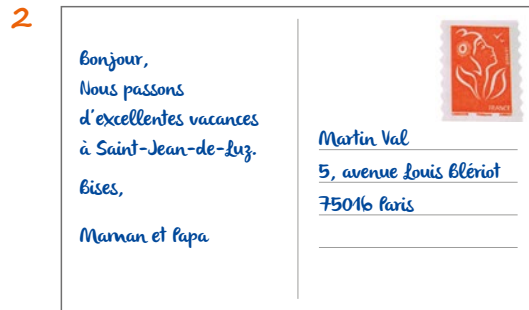 2
Bonjour,
Nous passons
d'excellentes vacances
à Saint-Jean-de-Luz.
Bises,
Maman et Papa
FRANCE
Martin Val
5, avenue Louis Blériot
75016 Paris